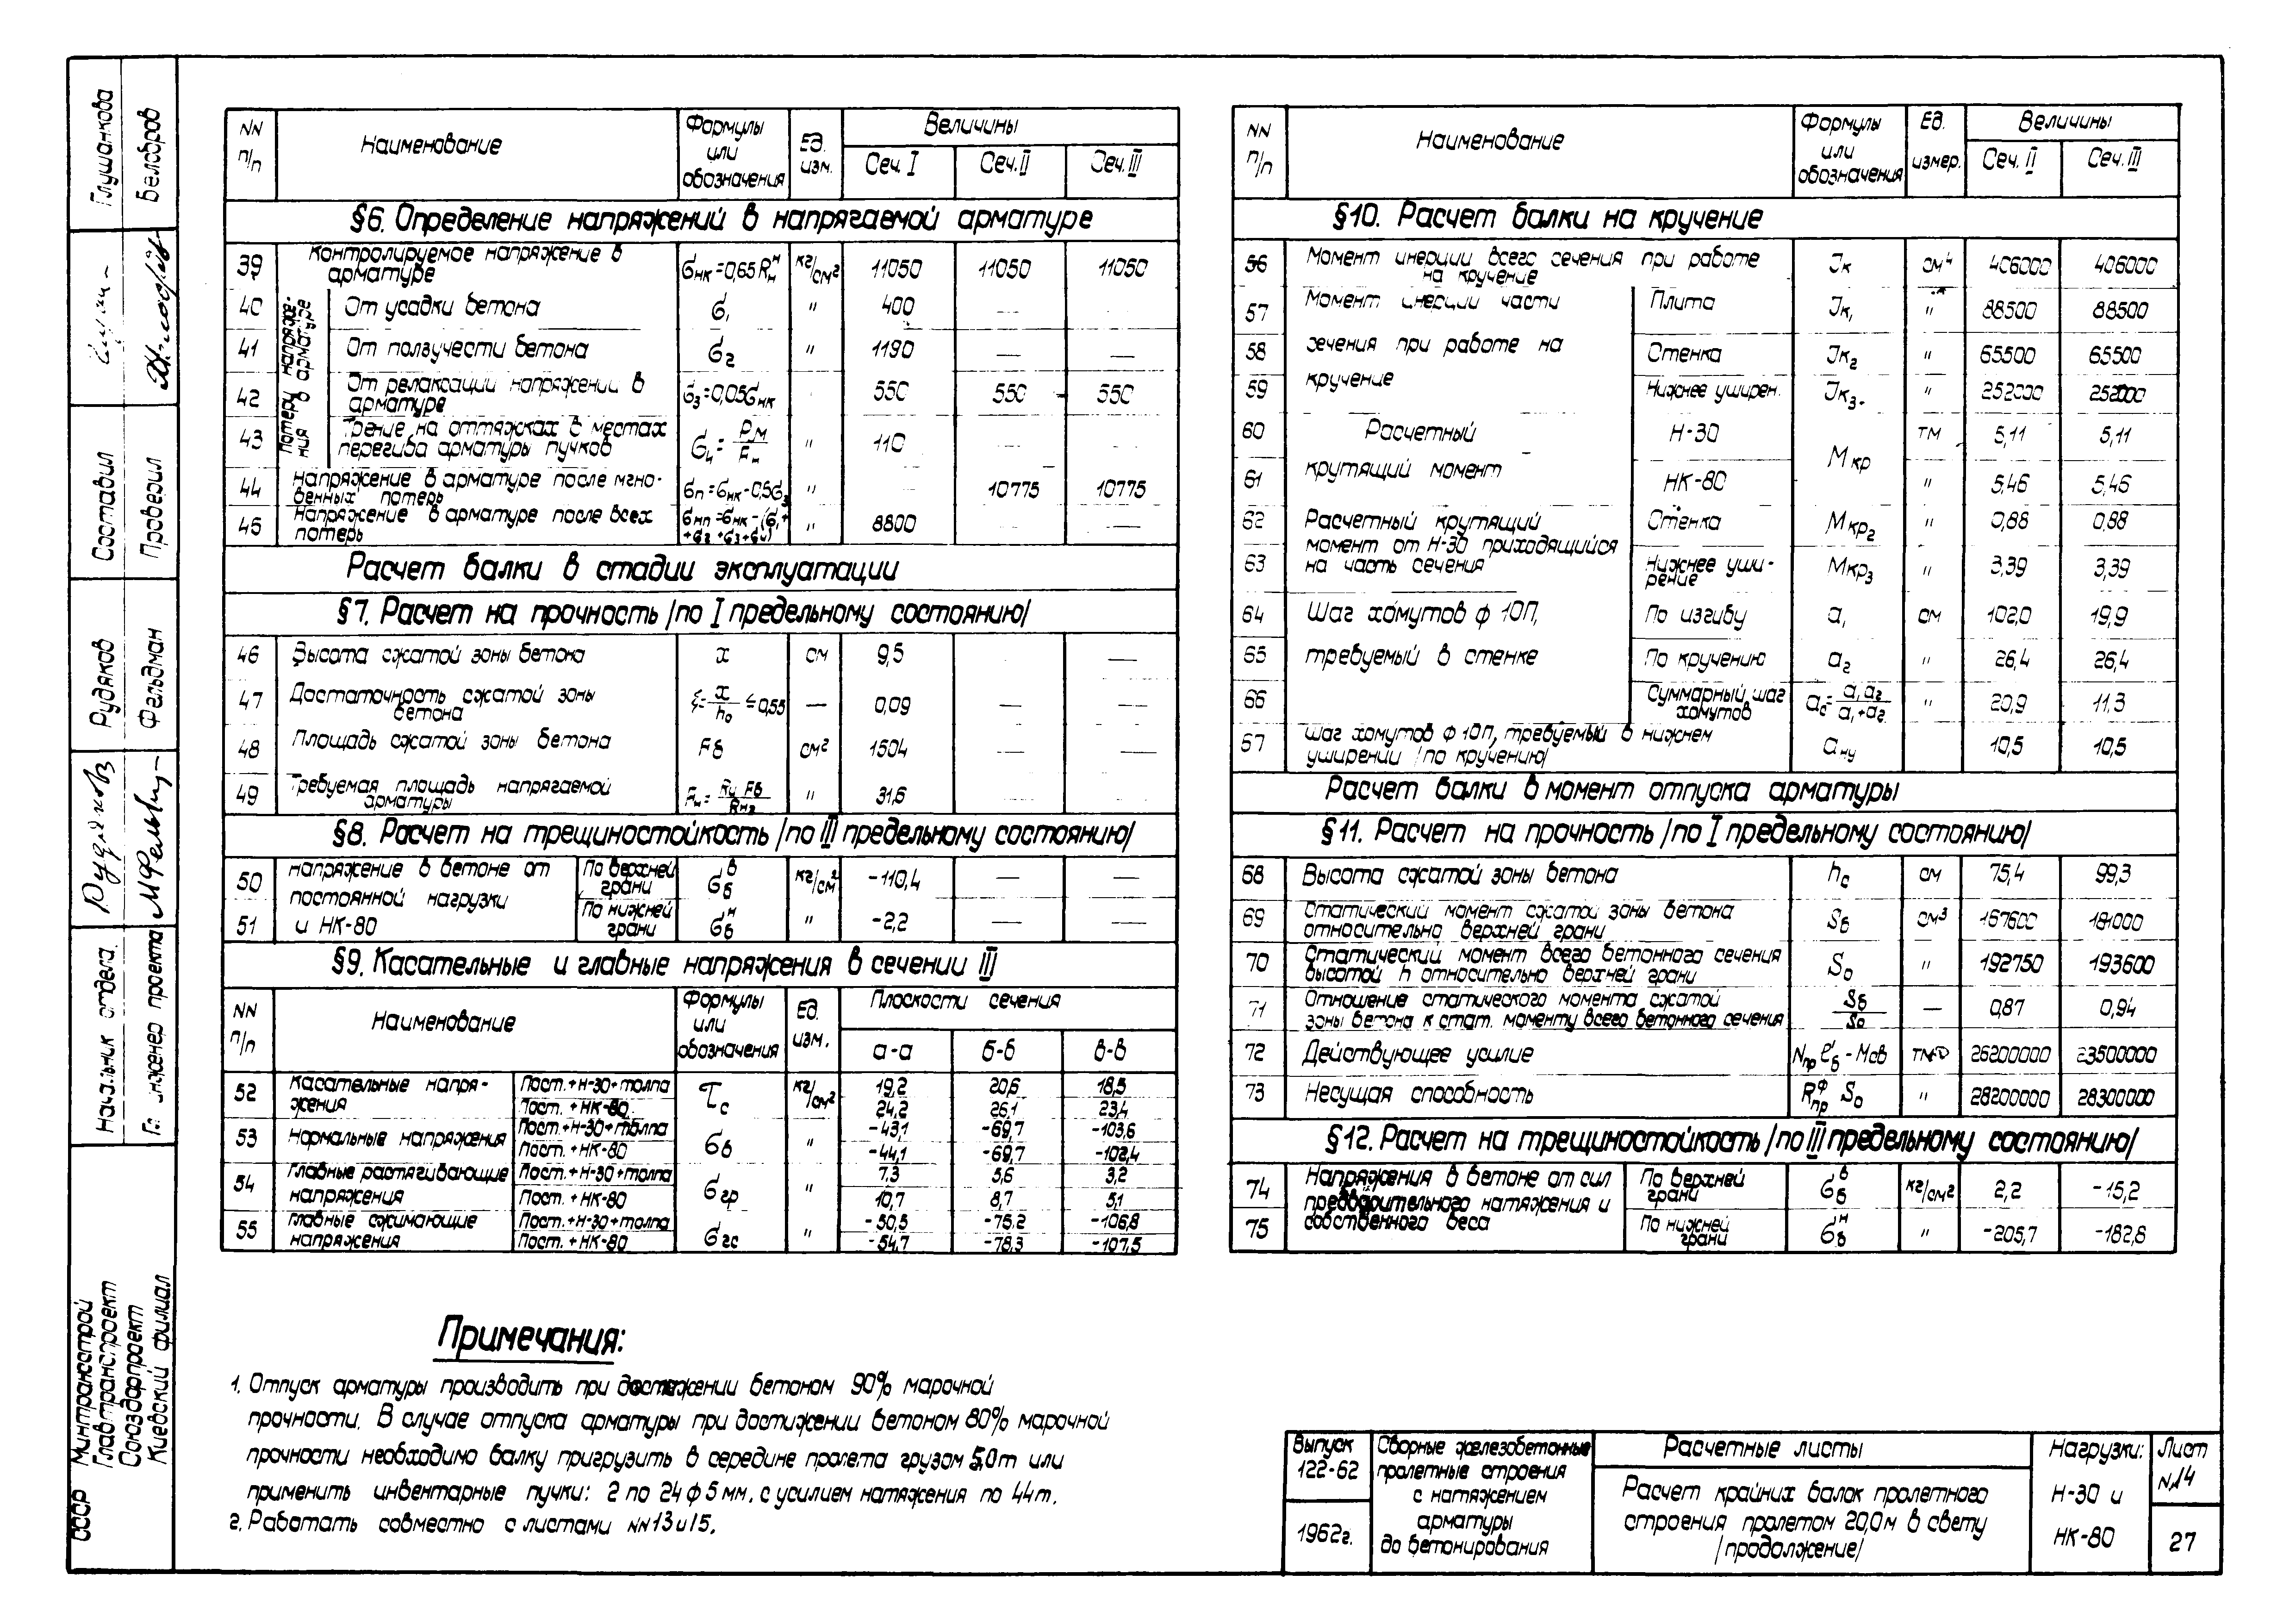 NN п/п | Наименование | Формулы или обозначения | Ед. изм. | Величины
Сеч. I | Сеч. II | Сеч. III
§6. Определение напряжений в напрягаемой арматуре
39 | Контролируемое напряжение в арматуре | σнк=0,65Rнᴴ | кг/см² | 11050 | 11050 | 11050
потери напряжения в арматуре
40 | От усадки бетона | σ₁ | " | 400
41 | От ползучести бетона | σ₂ | " | 1190 | — | —
42 | От релаксации напряжений в арматуре | σ₃=0,05σнк | 550 | 550 | 550
43 | Трение на оттяжках в местах перегиба арматуры пучков | " | 110 | — | —
44 | Напряжение в арматуре после мгновенных потерь | σп=σнк-0,5σ₃ | " | 10775 | 10775
45 | Напряжение в арматуре после всех потерь | σнп=σнк-(σ₁+σ₂+σ₃+σ₄) | " | 8800 | — | —
Расчет балки в стадии эксплуатации
§7. Расчет на прочность /по I предельному состоянию/
46 | Высота сжатой зоны бетона | x | см | 9,5 | —
47 | Достаточность сжатой зоны бетона | ξ=x/h₀≤0,55 | — | 0,09 | — | —
48 | Площадь сжатой зоны бетона | Fб | см² | 1504 | — | —
49 | Требуемая площадь напрягаемой арматуры | Fн=Rи Fб/Rн₂ | " | 31,6 | — | —
§8. Расчет на трещиностойкость /по III предельному состоянию/
напряжение в бетоне от постоянной нагрузки и НК-80
50 | По верхней грани | σбᵇ | кг/см² | -110,4 | — | —
51 | По нижней грани | σбᴴ | " | -2,2 | — | —
§9. Касательные и главные напряжения в сечении III
NN п/п | Наименование | Формулы или обозначения | Ед. изм. | Плоскости сечения
а-а | б-б | в-в
52 | касательные напряжения | Пост.+Н-30+толпа | τс | кг/см² | 19,2 | 20,6 | 18,5
Пост.+НК-80 | 24,2 | 26,1 | 23,4
53 | Нормальные напряжения | Пост.+Н-30+толпа | σб | " | -43,1 | -69,7 | -103,6
Пост.+НК-80 | -44,1 | -69,7 | -102,4
54 | Главные растягивающие напряжения | Пост.+Н-30+толпа | σгр | " | 7,3 | 5,6 | 3,2
Пост.+НК-80 | 10,7 | 8,7 | 5,1
55 | Главные сжимающие напряжения | Пост.+Н-30+толпа | σгс | " | -50,5 | -75,2 | -106,8
Пост.+НК-80 | -54,7 | -78,3 | -107,5
NN п/п | Наименование | Формулы или обозначения | Ед. измер. | Величины
Сеч. II | Сеч. III
§10. Расчет балки на кручение
56 | Момент инерции всего сечения при работе на кручение | Jк | см⁴ | 406000 | 406000
Момент инерции части сечения при работе на кручение
57 | Плита | Jк₁ | " | 88500 | 88500
58 | Стенка | Jк₂ | " | 65500 | 65500
59 | Нижнее уширен. | Jк₃ | " | 252000 | 252000
Расчетный крутящий момент
60 | Н-30 | Мкр | тм | 5,11 | 5,11
61 | НК-80 | " | 5,46 | 5,46
Расчетный крутящий момент от Н-30 приходящийся на часть сечения
62 | Стенка | Мкр₂ | " | 0,88 | 0,88
63 | Нижнее уширение | Мкр₃ | " | 3,39 | 3,39
Шаг хомутов ф 10П, требуемый в стенке
64 | По изгибу | а₁ | см | 102,0 | 19,9
65 | По кручению | а₂ | " | 26,4 | 26,4
66 | Суммарный шаг хомутов | ас=а₁а₂/а₁+а₂ | " | 20,9 | 11,3
67 | Шаг хомутов ф 10П, требуемый в нижнем уширении /по кручению/ | ану | 10,5 | 10,5
Расчет балки в момент отпуска арматуры
§11. Расчет на прочность /по I предельному состоянию/
68 | Высота сжатой зоны бетона | hс | см | 75,4 | 99,3
69 | Статический момент сжатой зоны бетона относительно верхней грани | Sб | см³ | 167600 | 181000
70 | Статический момент всего бетонного сечения высотой h относительно верхней грани | S₀ | " | 192750 | 193600
71 | Отношение статического момента сжатой зоны бетона к стат. моменту всего бетонного сечения | Sб/S₀ | — | 0,87 | 0,94
72 | Действующее усилие | Nпр e'б-Mсв | 26200000 | 23500000
73 | Несущая способность | Rпрᶲ S₀ | " | 28200000 | 28300000
§12. Расчет на трещиностойкость /по III предельному состоянию/
Напряжения в бетоне от сил предварительного натяжения и собственного веса
74 | По верхней грани | σбᵇ | кг/см² | 2,2 | -15,2
75 | По нижней грани | σбᴴ | " | -205,7 | -182,8
Примечания:
1. Отпуск арматуры производить при достижении бетоном 90% марочной
прочности. В случае отпуска арматуры при достижении бетоном 80% марочной
прочности необходимо балку пригрузить в середине пролета грузом 5,0т или
применить инвентарные пучки: 2 по 24 ф 5 мм. с усилием натяжения по 44т.
2. Работать совместно с листами NN 13 и 15.
Выпуск 122-62
1962г.
Сборные железобетонные пролетные строения с натяжением арматуры до бетонирования
Расчетные листы
Расчет крайних балок пролетного строения пролетом 20,0м в свету /продолжение/
Нагрузки: Н-30 и НК-80
Лист N 14
27
СССР
Минтрансстрой
Главтранспроект
Союздорпроект
Киевский филиал
Начальник отдела
Гл. инженер проекта
Рудяков
Фельдман
Составил
Проверил
Глушанкова
Белобров